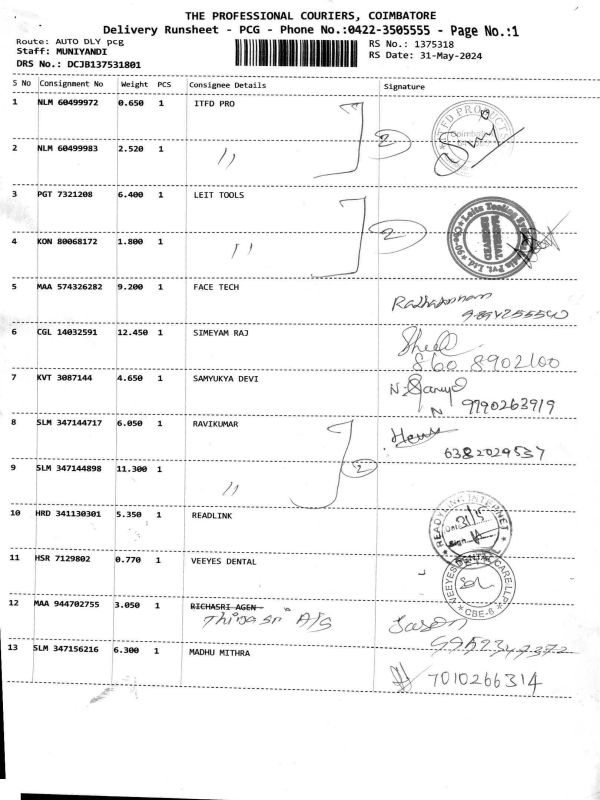 THE PROFESSIONAL COURIERS, COIMBATORE
Delivery Runsheet - PCG - Phone No.:0422-3505555 - Page No.:1
Route: AUTO DLY pcg
Staff: MUNIYANDI
DRS No.: DCJB137531801
RS No.: 1375318
RS Date: 31-May-2024
S No Consignment No Weight PCS Consignee Details Signature
1 NLM 60499972 0.650 1 ITFD PRO
2
2 NLM 60499983 2.520 1 //
3 PGT 7321208 6.400 1 LEIT TOOLS
2
4 KON 80068172 1.800 1 //
5 MAA 574326282 9.200 1 FACE TECH
6 CGL 14032591 12.450 1 SIMEYAM RAJ
860 8902100
7 KVT 3087144 4.650 1 SAMYUKYA DEVI
9790263919
8 SLM 347144717 6.050 1 RAVIKUMAR
6382029537
2
9 SLM 347144898 11.300 1 //
10 HRD 341130301 5.350 1 READLINK
READYLINK INTERNET
31/5
11 HSR 7129802 0.770 1 VEEYES DENTAL
VEEYES DENTAL CARE LLP
CBE-6
12 MAA 944702755 3.050 1 RICHASRI AGEN
13 SLM 347156216 6.300 1 MADHU MITHRA
7010266314